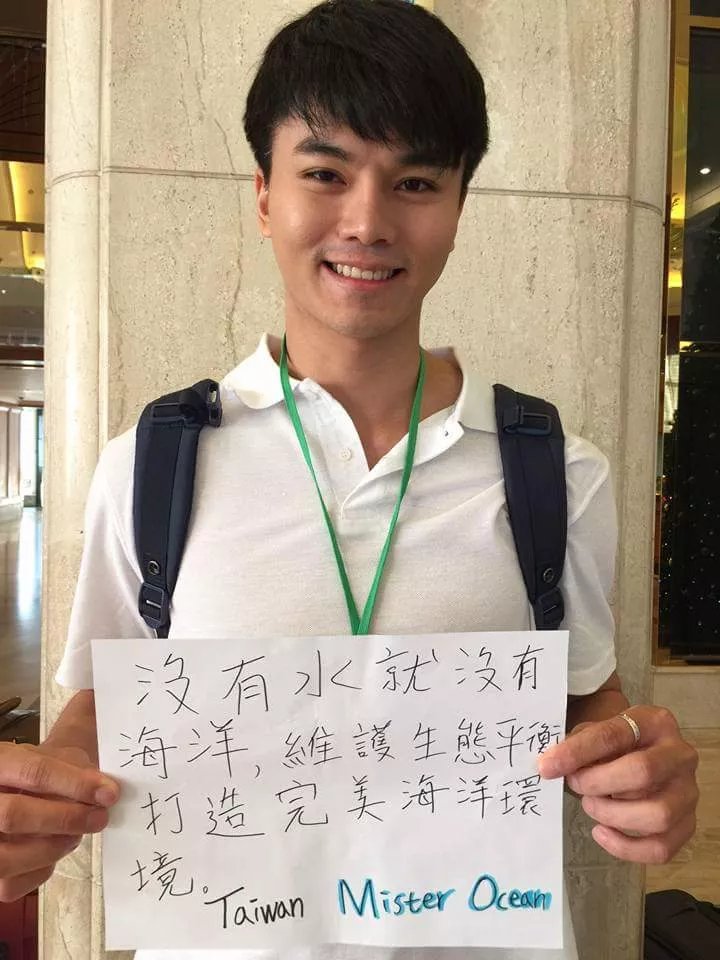 沒有水就沒有
海洋,維護生態平衡
打造完美海洋環
境。
Taiwan Mister Ocean